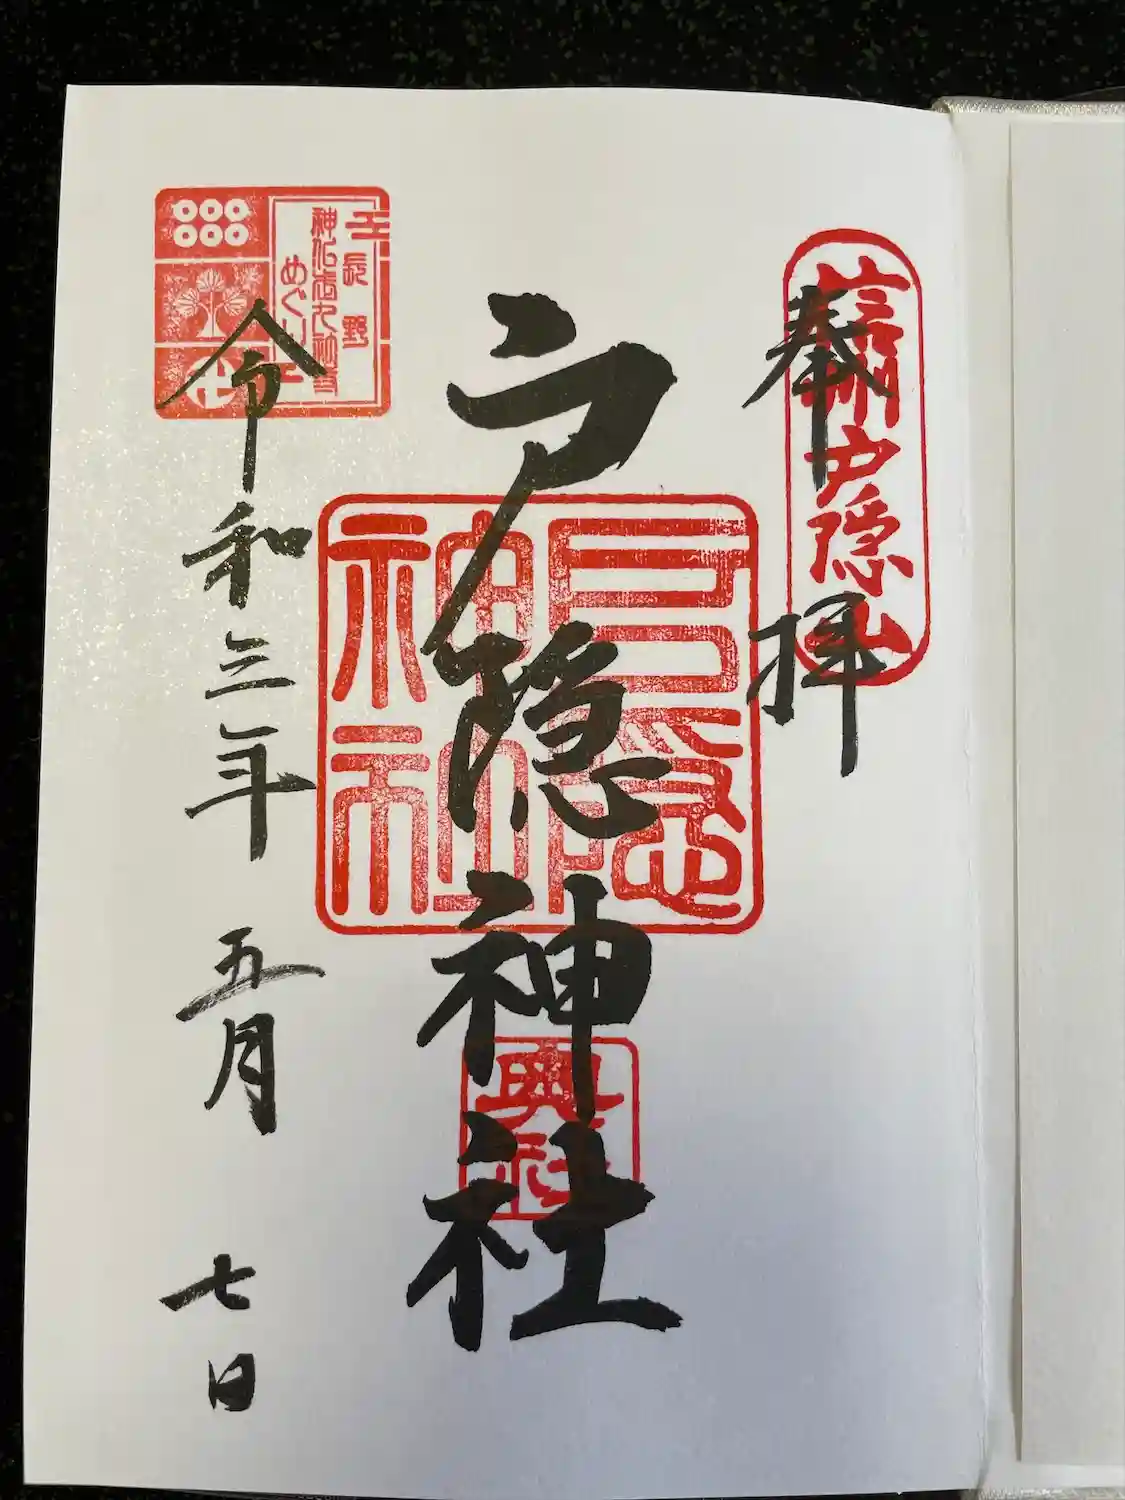 奉拝
信州戸隠山
戸隠神社
戸隠
神社
奥社
令和三年 五月 七日
長野
めぐり